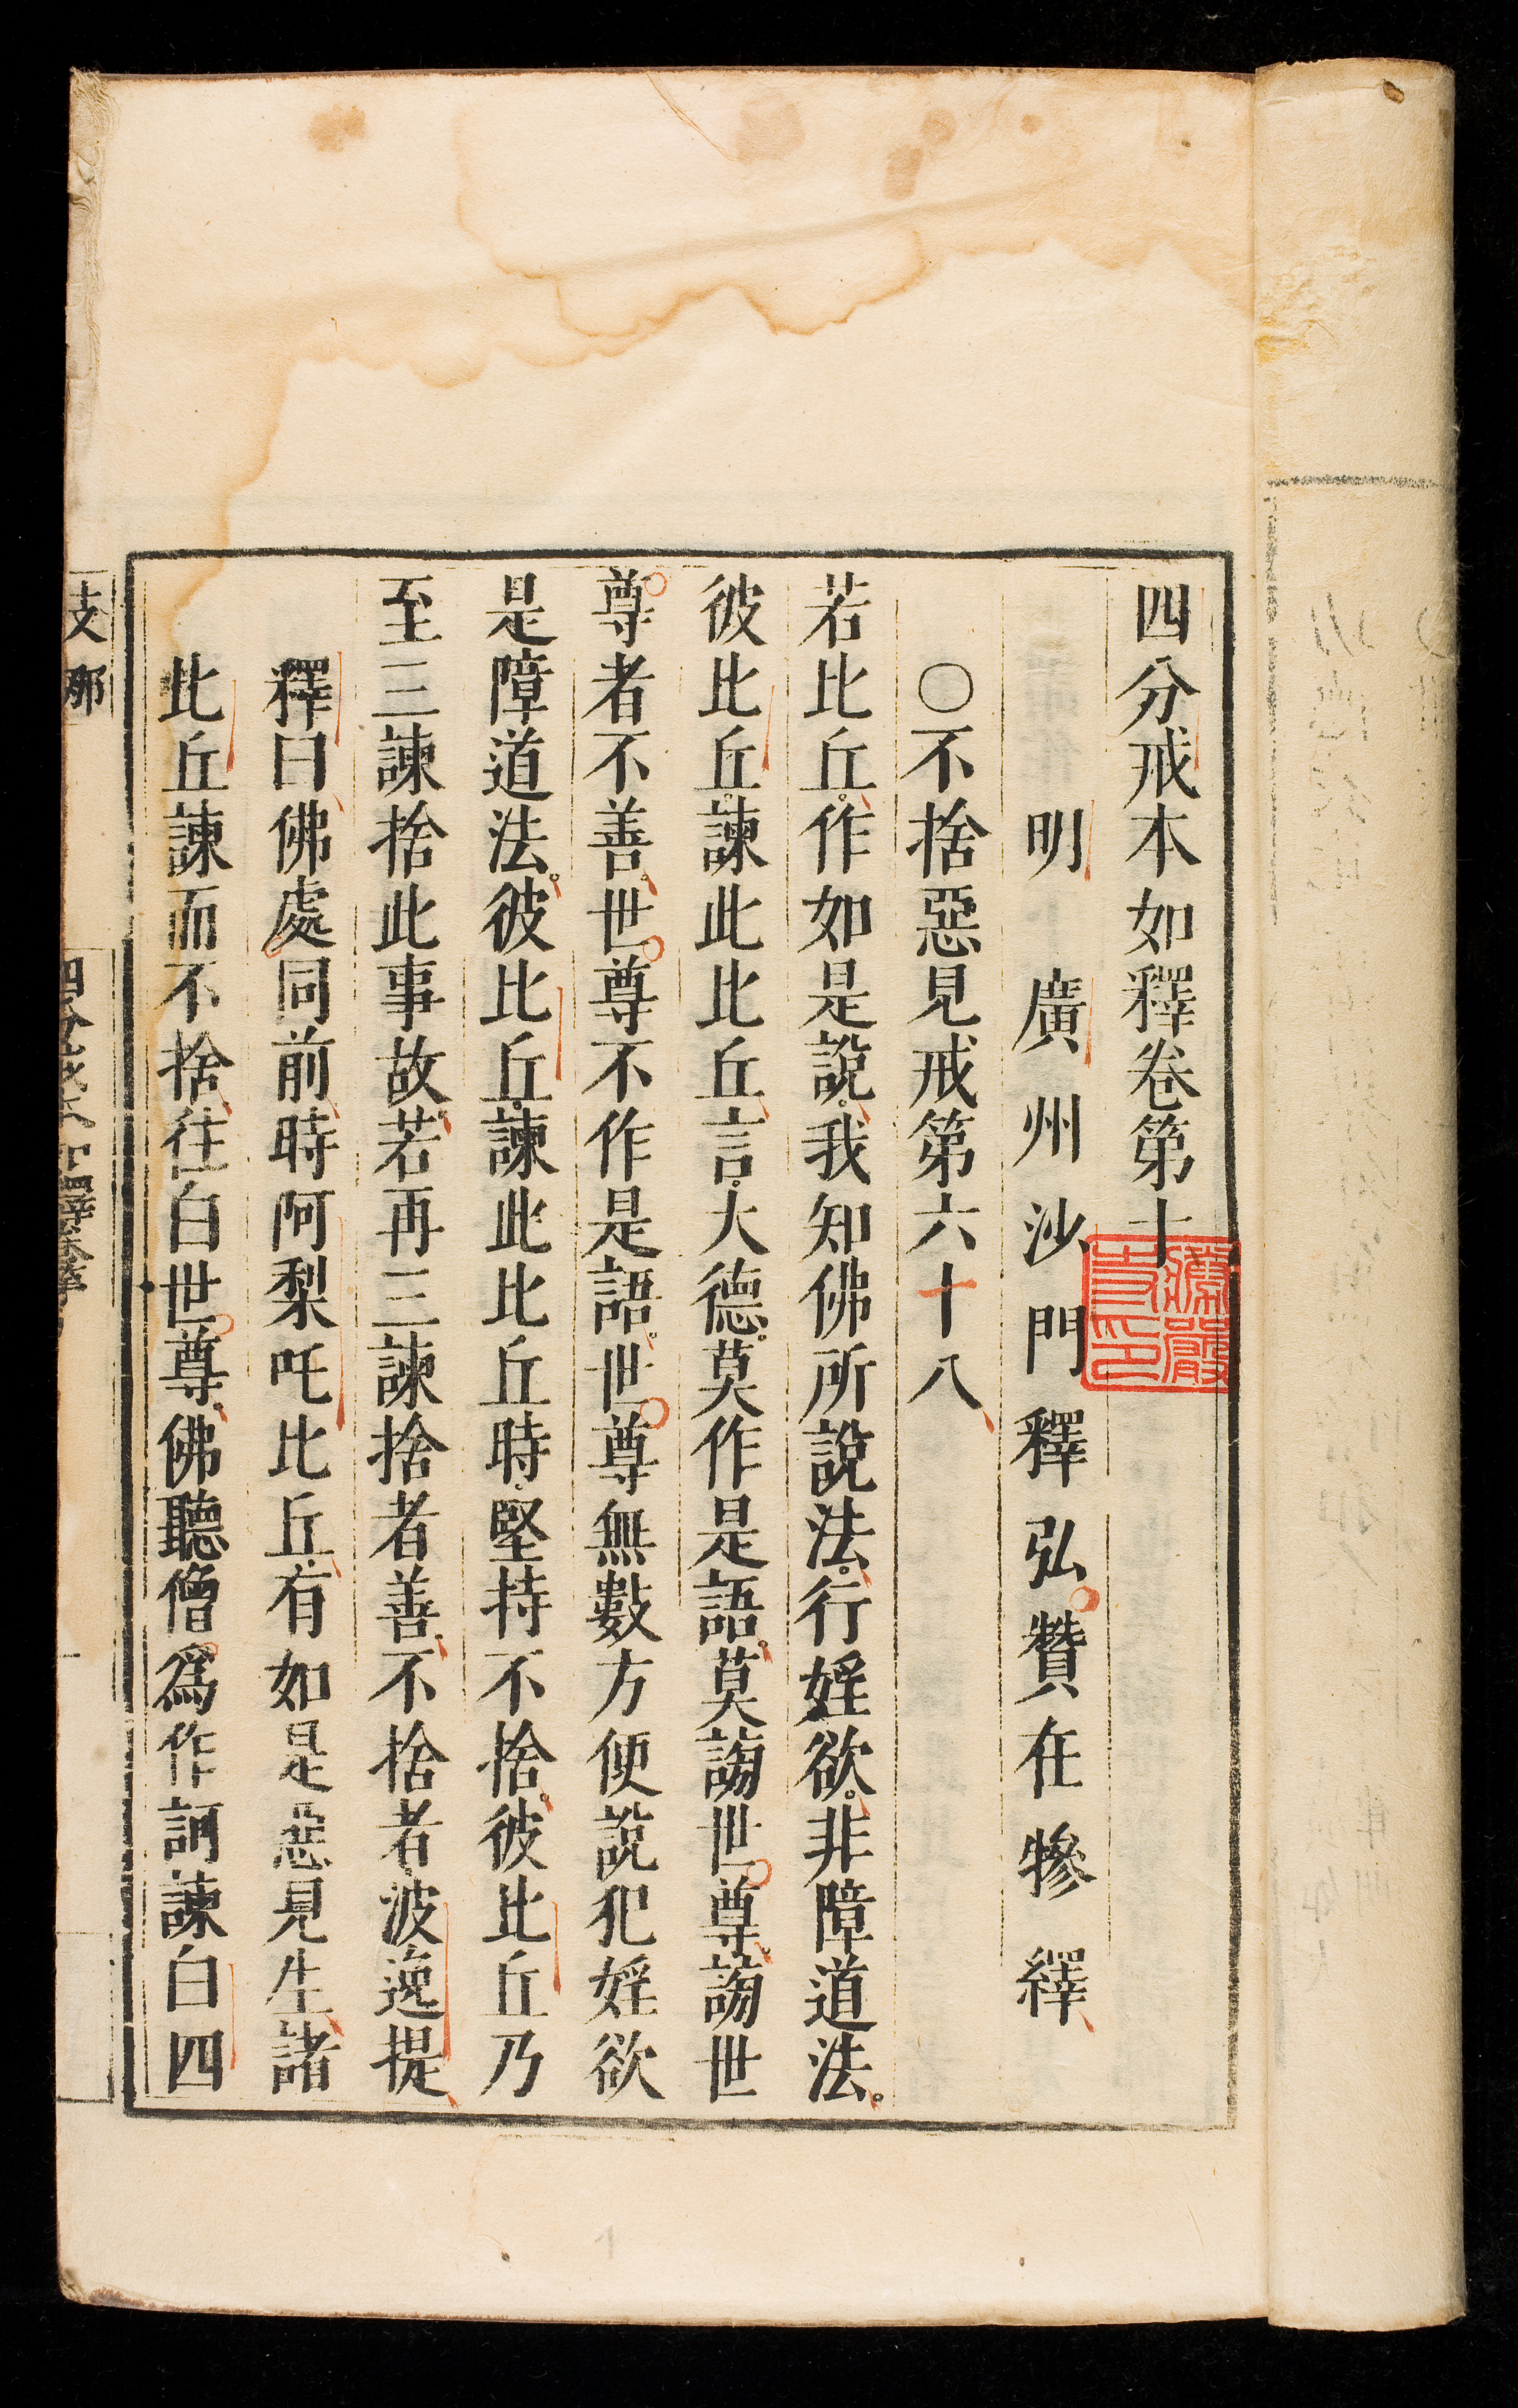 四分戒本如釋卷第十
明廣州沙門釋弘贊在犙繹
○不捨惡見戒第六十八
若比丘。作如是說。我知佛所說法。行婬欲。非障道法。
彼比丘。諫此比丘言。大德。莫作是語。莫謗世尊。謗世
尊者不善。世尊不作是語。世尊無數方便說犯婬欲
是障道法。彼比丘。諫此比丘時。堅持不捨。彼比丘乃
至三諫捨此事故。若再三諫捨者善。不捨者。波逸提
釋曰佛處同前時阿梨吒比丘有如是惡見生諸
此丘諫而不捨往白世尊佛聽僧爲作訶諫白四
支那
四分戒本如釋卷第
勝嚴寺印